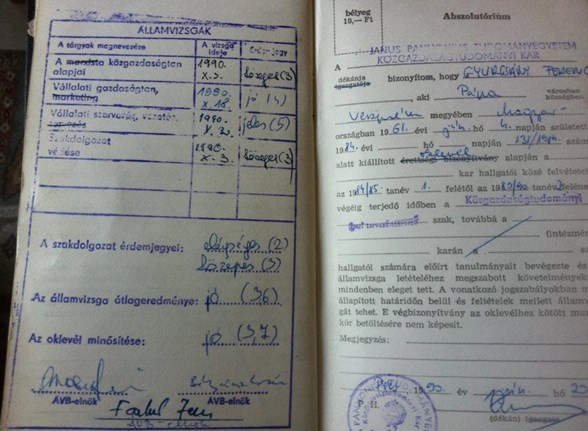 ÁLLAMVIZSGÁK
A tárgyak megnevezése
A vizsga ideje
Érdemjegy
A marxista közgazdaságtan alapjai
1990. X.3.
közepes (3)
Vállalati gazdaságtan, marketing
1990. X.18.
jó (4)
Vállalati szervezés, vezetés
1990. X.3.
jeles (5)
Szakdolgozat védése
1990. X.3.
közepes (3)
A szakdolgozat érdemjegyei: elégséges (2)
közepes (3)
Az államvizsga átlageredménye: jó (3,6)
Az oklevél minősítése: jó (3,7)
ÁVB-elnök
ÁVB-elnök
ÁVB-elnök
bélyeg
10,— Ft
Abszolutórium
JANUS PANNONIUS TUDOMÁNYEGYETEM
KÖZGAZDASÁGTUDOMÁNYI KAR
A
dékánja
igazgatója
bizonyítom, hogy GYURCSÁNY FERENC
, aki Pápa
városban
községben,
Veszprém megyében Magyar-
országban 1961. évi jún. hó 4. napján született
1984. évi hó napján 131/1984. szám
alatt kiállított érettségi bizonyítvány alapján a
kar hallgatói közé felvétetett
az 1984/85 tanév 1. felétől az 1989/90 tanév
végéig terjedő időben a Közgazdaságtudományi
szak, továbbá a
(intézmény)
karán a
hallgató számára előírt tanulmányait bevégezte és
államvizsga letételéhez megszabott követelmények
mindenben eleget tett. A vonatkozó jogszabályokban m
állapított határidőn belül és feltételek mellett államvizs
gát tehet. E végbizonyítvány az oklevélhez kötött mun
kör betöltésére nem képesít.
Megjegyzés:
Pécs, 1990. év jún. hó 20
P. H.
(dékán) igazgató